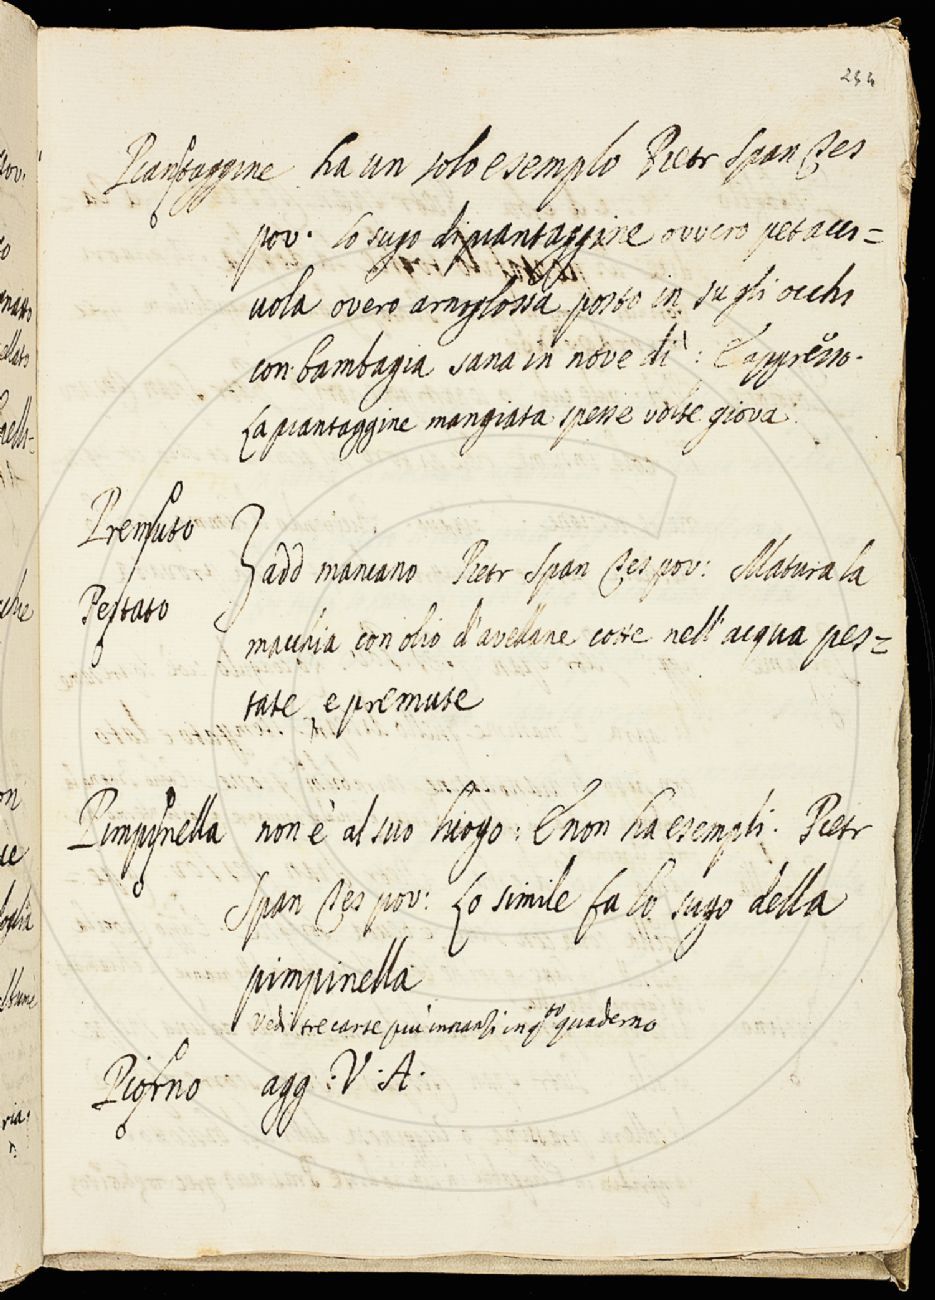 234
Piantaggine ha un solo esemplo Pietr Span Tes
pov. Lo sugo di piantaggine ovvero petacci=
uola overo arnoglossa posto in su gli occhi
con bambagia sana in nove dì : E appresso.
La piantaggine mangiata spesse volte giova
Premuto
Pestato
add mancano Pietr Span Tes pov: Matura la
macchia con olio d'avellane cotte nell'acqua pes=
tate e premute
Pimpinella non è al suo luogo : E non ha esempli. Pietr
Span Tes pov: Lo simile fa lo sugo della
pimpinella
Vedi tre carte più innanzi in q.to quaderno
Piorno agg : V. A.